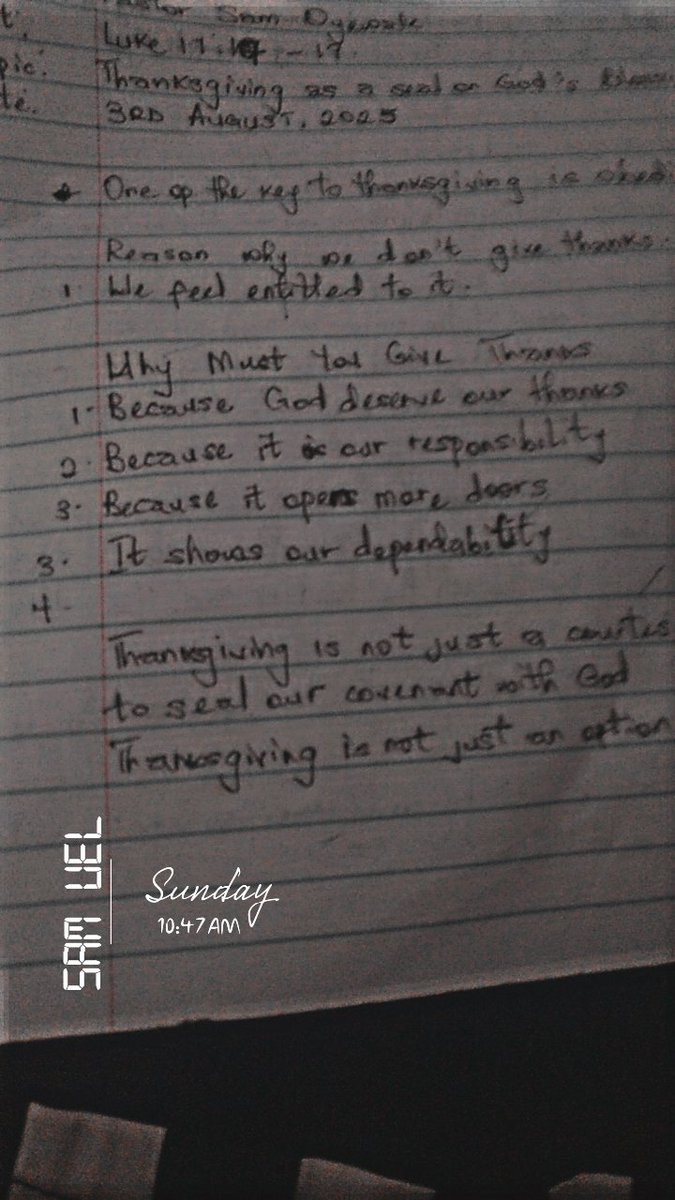 Pastor Sam Oyewole
t. Luke 17:14 - 17
pic. Thanksgiving as a seal on God's
te. 3RD AUGUST, 2025
One op the key to thanksgiving is
Reason why we don't give thanks.
1. We feel entitled to it.
Why Must You Give Thanks
1. Because God deserve our thanks
2. Because it is our responsibility
3. Because it opens more doors
3. It shows our dependability
4.
Thanksgiving is not just a
to seal our covenant with God
Thanksgiving is not just an option
SAM UEL
Sunday
10:47 AM